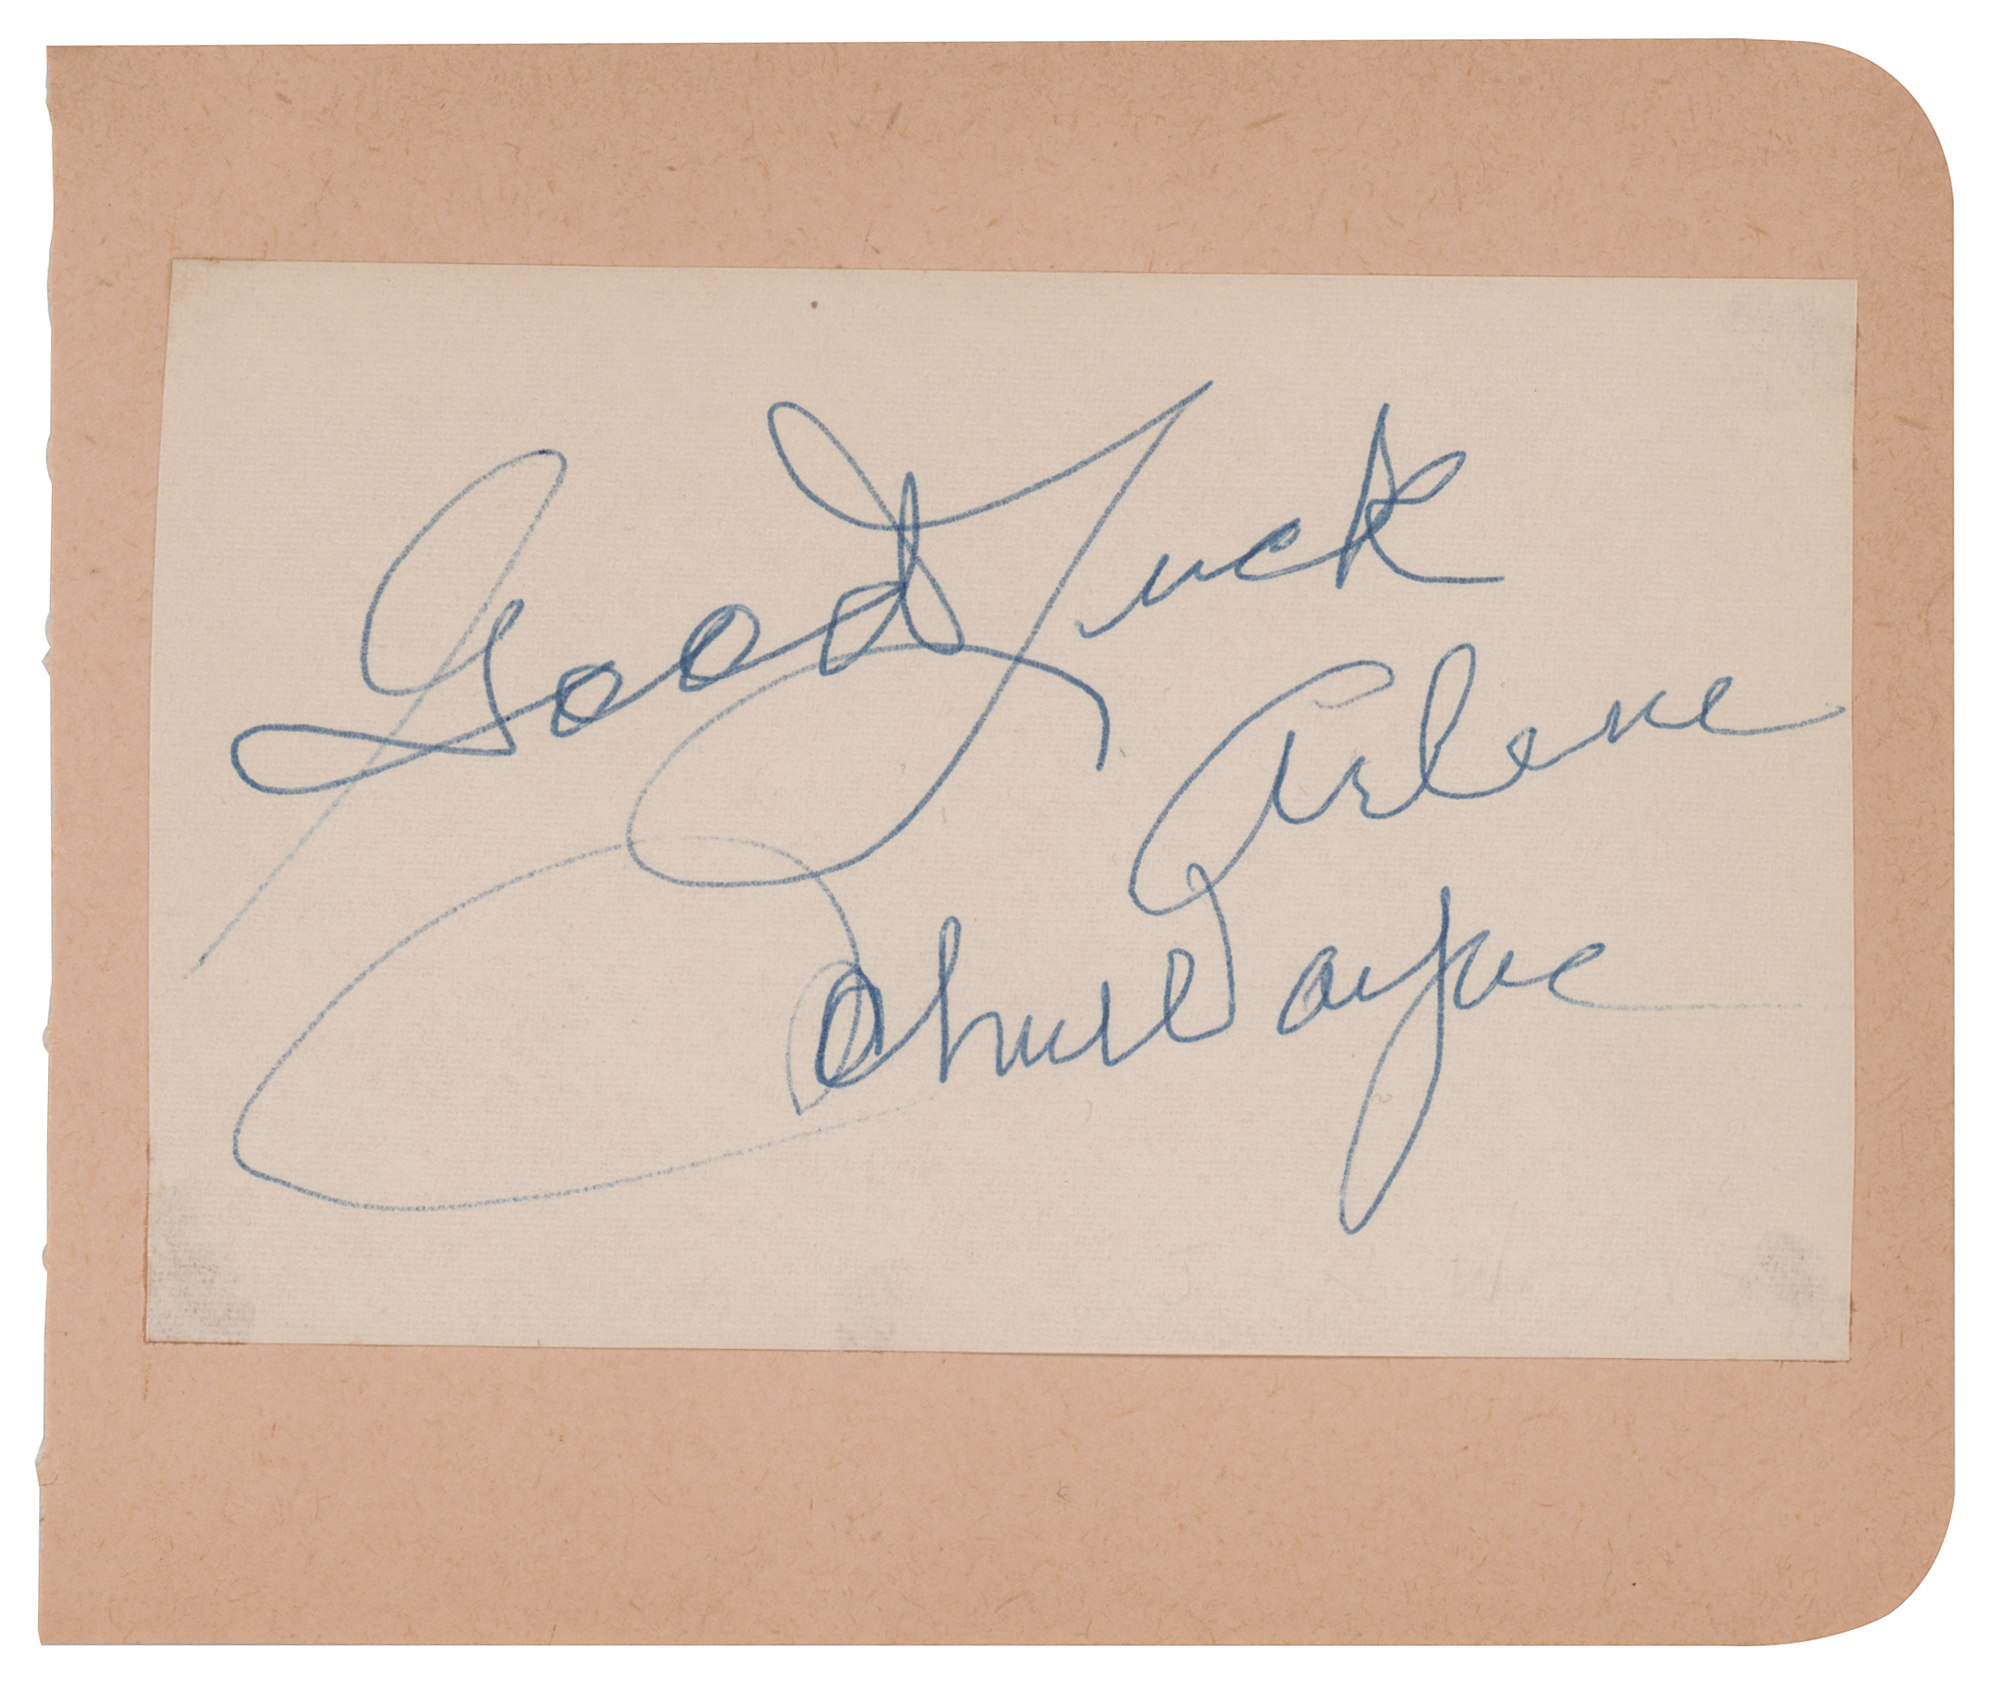 Good Luck
Arlene
John Wayne